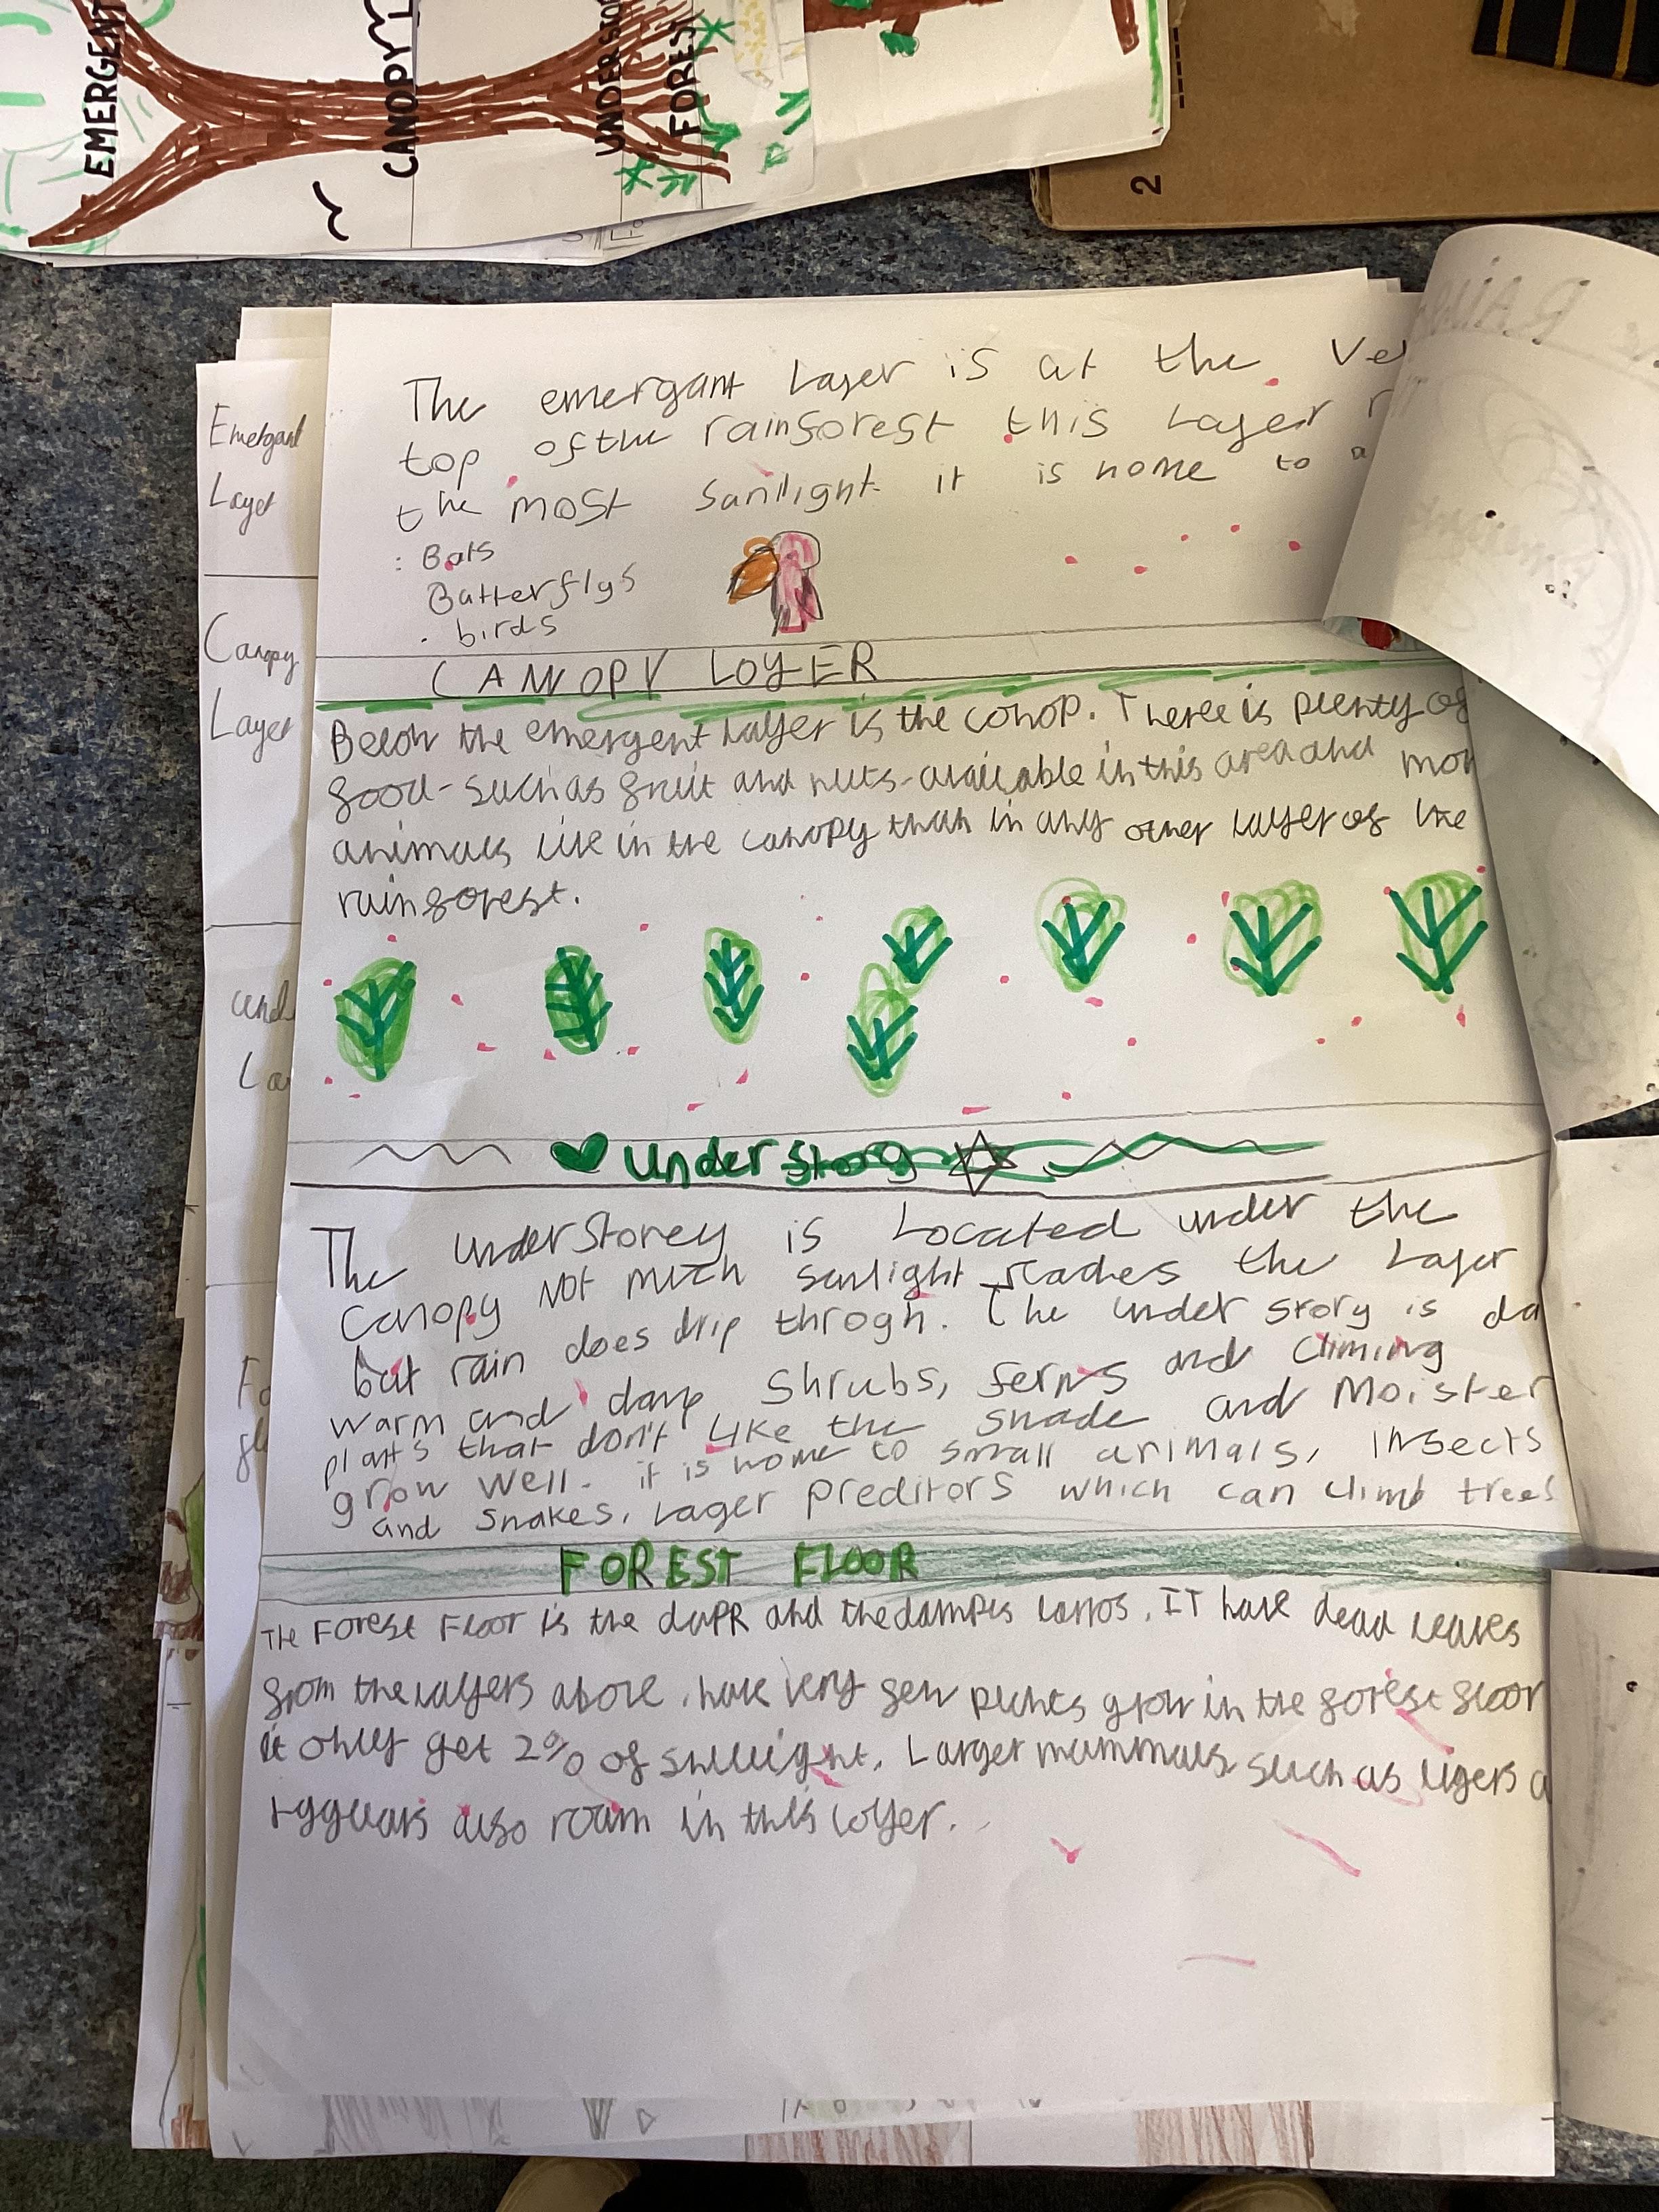 EMERGENT
CANOPY L
UNDERSTO
FOREST
2
Emergant
Layer
Canopy
Layer
und
La
Fo
The emergant Layer is at the Ve
top of the rainforest this Layer r
the most sanllight it is home to a
: Bats
Batterflys
. birds
CANOPY LOYER
Below the emergent layer is the conop. There is plenty of
food - such as fruit and nuts - available in this area and mor
animals live in the canopy than in any other layer of the
rainforest.
under story
The underStorey is Located under the
Canopy Not much sunlight reaches the Layer
but rain does drip throgh. The under story is da
warm and damp Shrubs, ferns and climing
plants that don't Like the shade and Moister
grow well. it is home to small animals, insects
and snakes, Lager preditors which can climb trees
FOREST FLOOR
THE FOrest FLoor is the and the IT have dead leaves
from the layers above. have very few grow in the forest floor
it only get 2% of Larger mammals such as tigers a
also roam in this loyer.